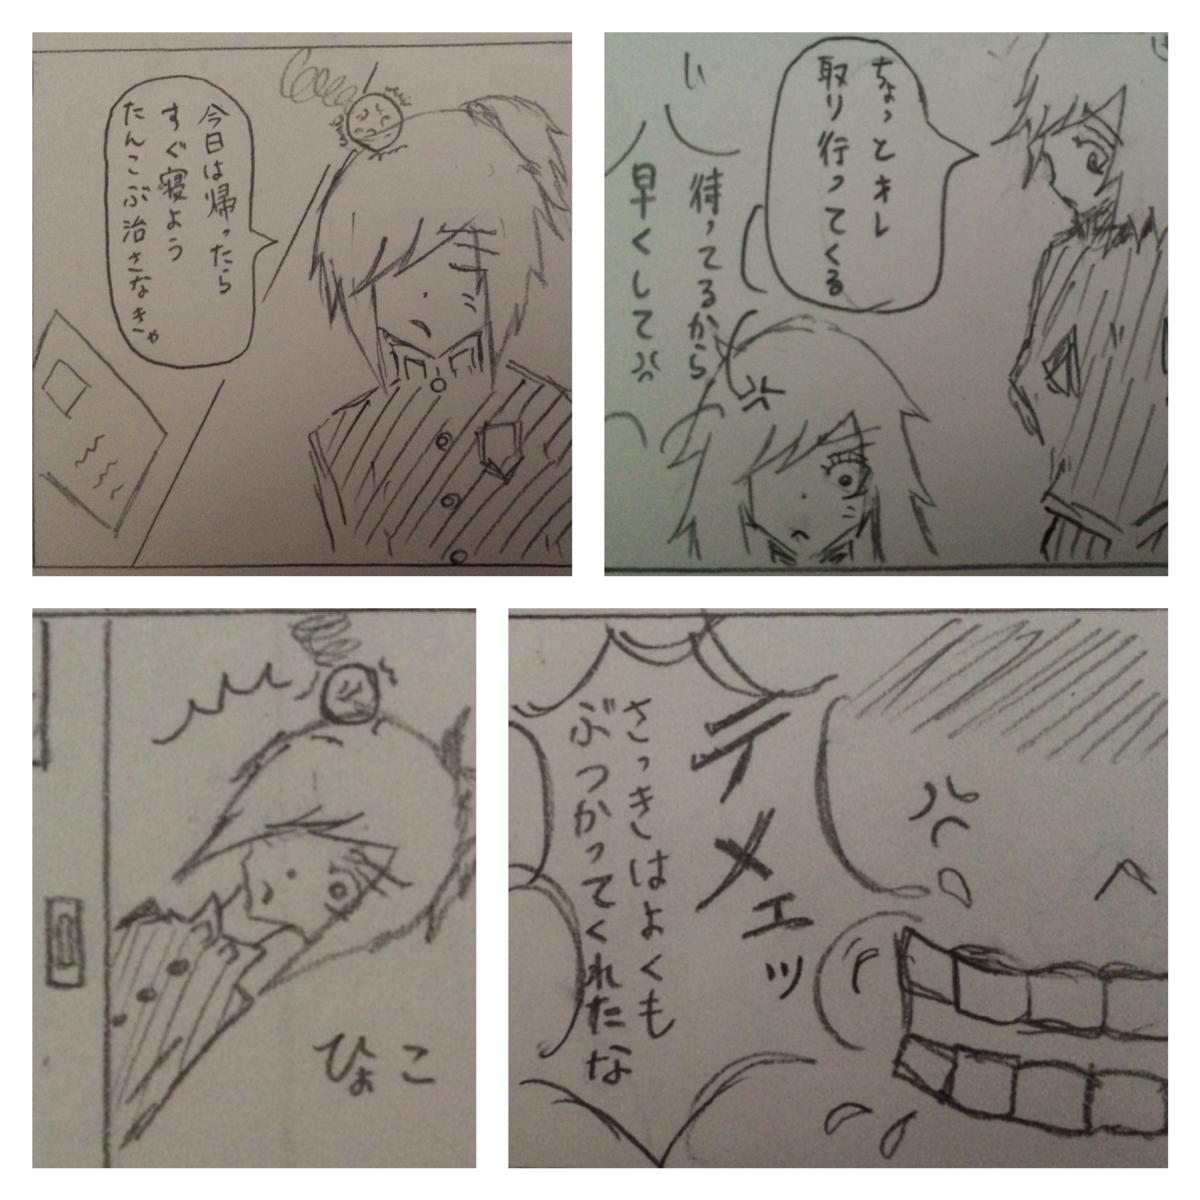 今日は帰ったら
すぐ寝よう
たんこぶ治さなきゃ
ちょっとオレ
取り行ってくる
待ってるから
早くして
ひょこ
テメェッ
さっきはよくも
ぶつかってくれたな